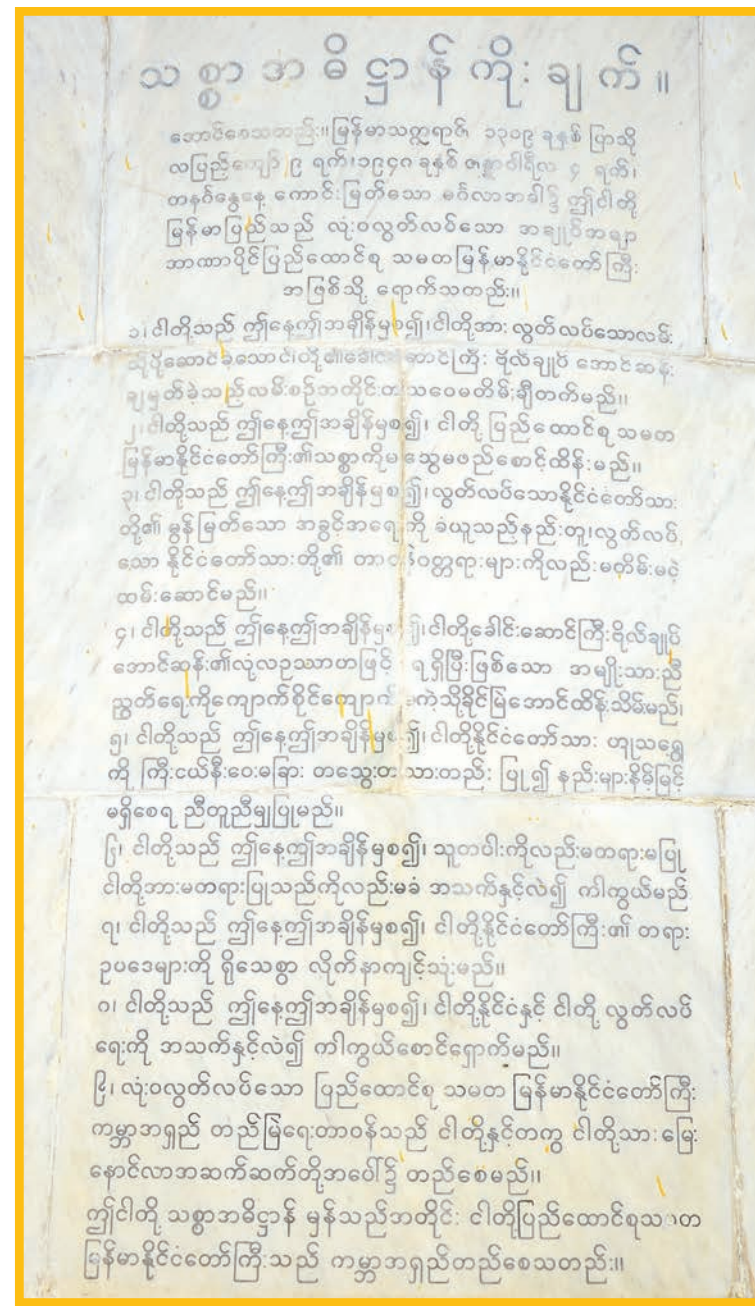 သစ္စာအဓိဋ္ဌာန်ကိုးချက်။
အောင်စေသတည်း။မြန်မာသက္ကရာဇ် ၁၃၀၉ ခုနှစ် ပြာသို
လပြည့်ကျော် ၉ ရက်၊၁၉၄၈ ခုနှစ် ဇန္နဝါရီလ ၄ ရက်၊
တနင်္ဂနွေနေ့ ကောင်းမြတ်သော မင်္ဂလာအခါ၌ ဤငါတို့
မြန်မာပြည်သည် လုံးဝလွတ်လပ်သော အချုပ်အချာ
အာဏာပိုင်ပြည်ထောင်စု သမတမြန်မာနိုင်ငံတော်ကြီး
အဖြစ်သို့ ရောက်သတည်း။
၁၊ ငါတို့သည် ဤနေ့ဤအချိန်မှစ၍၊ငါတို့အား လွတ်လပ်သောလမ်း
သို့ပို့ဆောင်ခဲ့သောငါတို့၏ခေါင်းဆောင်ကြီး ဗိုလ်ချုပ် အောင်ဆန်း
ချမှတ်ခဲ့သည့်လမ်းစဉ်အတိုင်းတသဝေမတိမ်းချီတက်မည်။
၂၊ ငါတို့သည် ဤနေ့ဤအချိန်မှစ၍၊ ငါတို့ ပြည်ထောင်စု သမတ
မြန်မာနိုင်ငံတော်ကြီး၏သစ္စာကိုမသွေမဖည်စောင့်ထိန်းမည်။
၃၊ ငါတို့သည် ဤနေ့ဤအချိန်မှစ၍၊လွတ်လပ်သောနိုင်ငံတော်သား
တို့၏ မွန်မြတ်သော အခွင့်အရေးကို ခံယူသည့်နည်းတူ၊လွတ်လပ်
သော နိုင်ငံတော်သားတို့၏ တာဝန်ဝတ္တရားများကိုလည်းမတိမ်းမငဲ့
ထမ်းဆောင်မည်။
၄၊ ငါတို့သည် ဤနေ့ဤအချိန်မှစ၍၊ငါတို့ခေါင်းဆောင်ကြီးဗိုလ်ချုပ်
အောင်ဆန်း၏လုံ့လဥဿာဟဖြင့် ရရှိပြီးဖြစ်သော အမျိုးသားညီ
ညွတ်ရေးကိုကျောက်စိုင်ကျောက် ကဲ့သို့ခိုင်မြဲအောင်ထိန်းသိမ်းမည်၊
၅၊ ငါတို့သည် ဤနေ့ဤအချိန်မှစ၍၊ငါတို့နိုင်ငံတော်သား ဟူသရွေ့
ကို ကြီးငယ်နီးဝေးမခြား တသွေးတသားတည်း ပြု၍ နည်းများနိမ့်မြင့်
မရှိစေရ ညီတူညီမျှပြုမည်။
၆၊ ငါတို့သည် ဤနေ့ဤအချိန်မှစ၍၊ သူတပါးကိုလည်းမတရားမပြု
ငါတို့အားမတရားပြုသည်ကိုလည်းမခံ အသက်နှင့်လဲ၍ ကါကွယ်မည်
၇၊ ငါတို့သည် ဤနေ့ဤအချိန်မှစ၍၊ ငါတို့နိုင်ငံတော်ကြီး၏ တရား
ဥပဒေများကို ရိုသေစွာ လိုက်နာကျင့်သုံးမည်။
၈၊ ငါတို့သည် ဤနေ့ဤအချိန်မှစ၍၊ ငါတို့နိုင်ငံနှင့် ငါတို့ လွတ်လပ်
ရေးကို အသက်နှင့်လဲ၍ ကါကွယ်စောင့်ရှောက်မည်။
၉၊ လုံးဝလွတ်လပ်သော ပြည်ထောင်စု သမတ မြန်မာနိုင်ငံတော်ကြီး
ကမ္ဘာအရှည် တည်မြဲရေးတာဝန်သည် ငါတို့နှင့်တကွ ငါတို့သားမြေး
နောင်လာအဆက်ဆက်တို့အပေါ်၌ တည်စေမည်။
ဤငါတို့ သစ္စာအဓိဋ္ဌာန် မှန်သည့်အတိုင်း ငါတို့ပြည်ထောင်စုသမတ
မြန်မာနိုင်ငံတော်ကြီးသည် ကမ္ဘာအရှည်တည်စေသတည်း။